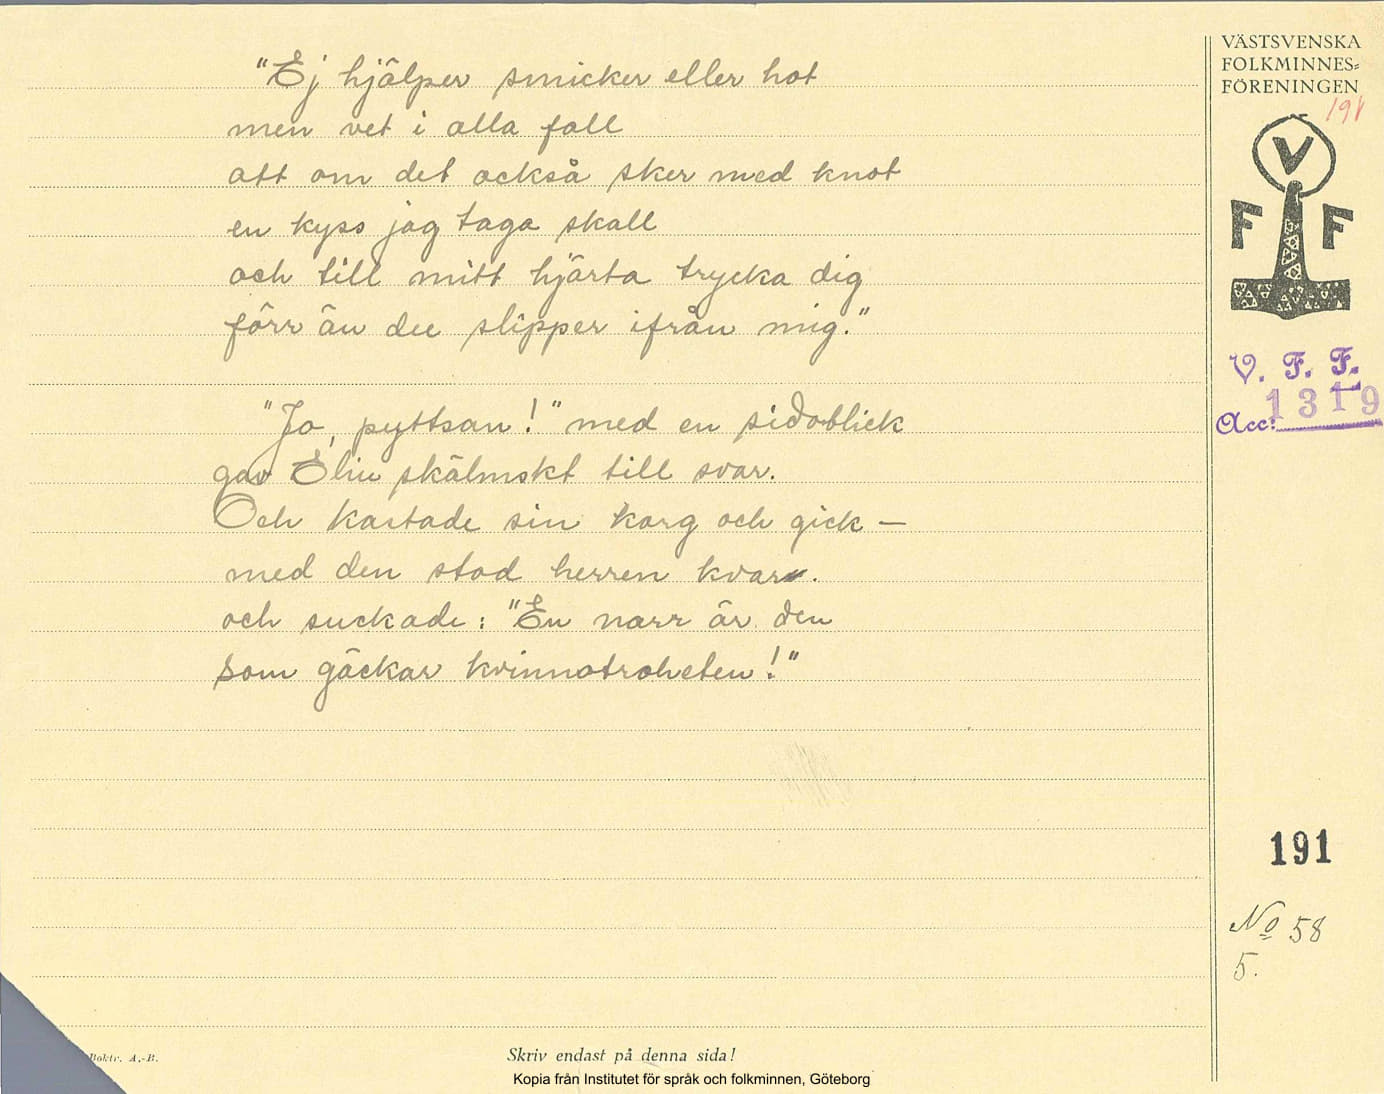 "Ej hjälper smicker eller hot
men vet i alla fall
att om det också sker med knot
en kyss jag taga skall
och till mitt hjärta trycka dig
förr än du slipper ifrån mig."
"Jo, pyttsan!" med en sidoblick
gav Elin skälmskt till svar.
Och kastade sin korg och gick —
med den stod herren kvar.
och suckade: "En narr är den
som gäckar kvinnotroheten!"
VÄSTSVENSKA
FOLKMINNES=
FÖRENINGEN
191
V
F F
V. F. F.
Acc: 1319
191
No 58
5.
Boktr. A.-B.
Skriv endast på denna sida!
Kopia från Institutet för språk och folkminnen, Göteborg